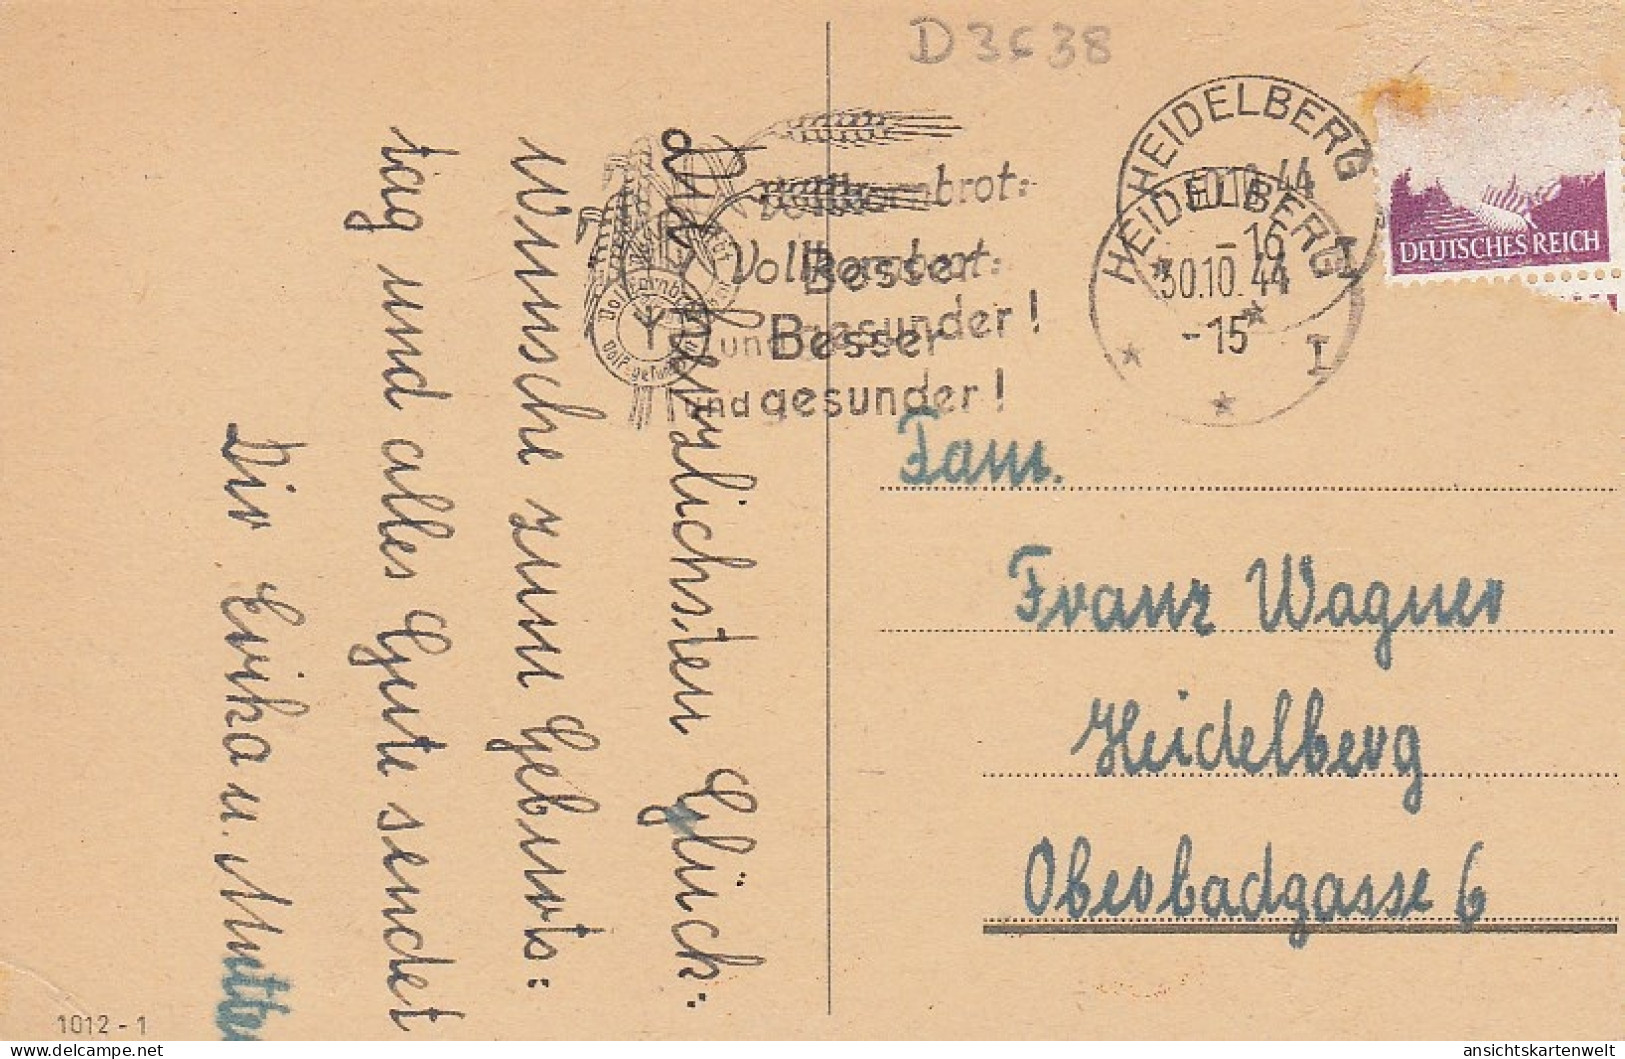 D 3638
HEIDELBERG
30.10.44
-16
HEIDELBERG
30.10.44
-15
1
Vollkornbrot:
Besser
und gesunder!
Vollkornbrot:
Besser
und gesunder!
DEUTSCHES REICH
Die herzlichsten Glück-
wünsche zum Geburts-
tag und alles Gute sendet
Dir Erika u. Mutter
Fam.
Franz Wagner
Heidelberg
Oberbadgasse 6
1012 - 1
www.delcampe.net
ansichtskartenwelt